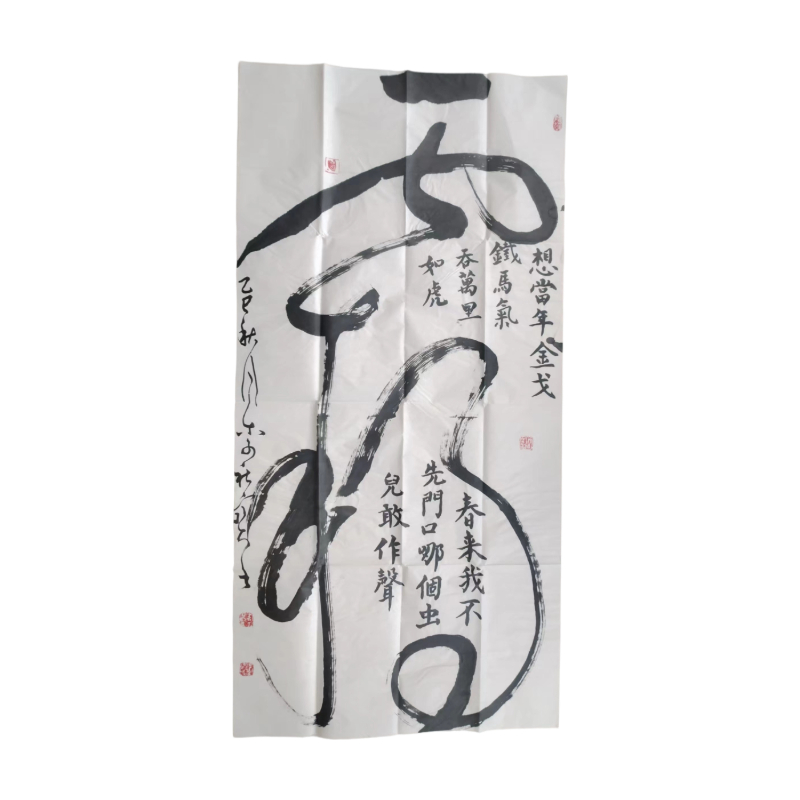 想當年金戈
鐵馬氣
吞萬里
如虎
春来我不
先門口哪個虫
兒敢作聲
乙巳秋月